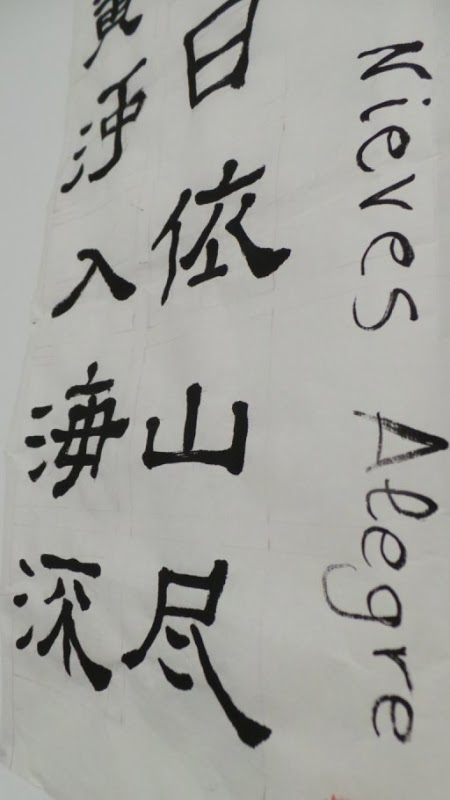 Nieves Alegre
日依山尽
黄河入海深